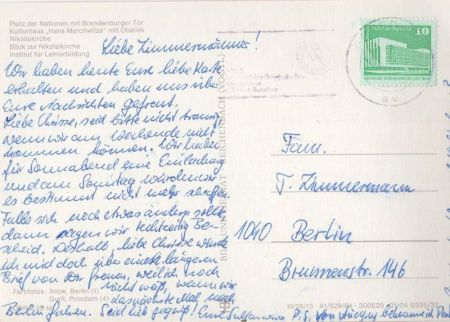 Platz der Nationen mit Brandenburger Tor
Kulturhaus „Hans Marchwitza" mit Obelisk
Nikolaikirche
Blick zur Nikolaikirche
Institut für Lehrerbildung
Liebe Zimmermänner!
Wir haben heute Eure liebe Karte
erhalten und haben uns über
Eure Nachrichten gefreut.
Liebe Christa, seid bitte nicht traurig,
wenn wir am Wochende nicht
kommen können. Wir haben
für Sonnabend eine Einladung
und am Sonntag würden wir
es bestimmt nicht mehr schaffen.
Falls sich noch etwas ändern sollte,
dann sagen wir rechtzeitig Be-
scheid. Deshalb, liebe Christa, würde
ich mich doch über einen längeren
Brief von Dir freuen, weil ich noch
nicht weiß, wann wir
das nächste Mal nach
Berlin fahren. Seid lieb gegrüßt Eure
P.S. von
BILD UND HEIMAT REICHENBACH (VOGTL)
10
DDR
Fam.
T. Zimmermann
1040 Berlin
Brunnenstr. 146
Farbfotos: Ihlow, Berlin (5)
Gürtl, Potsdam (4)